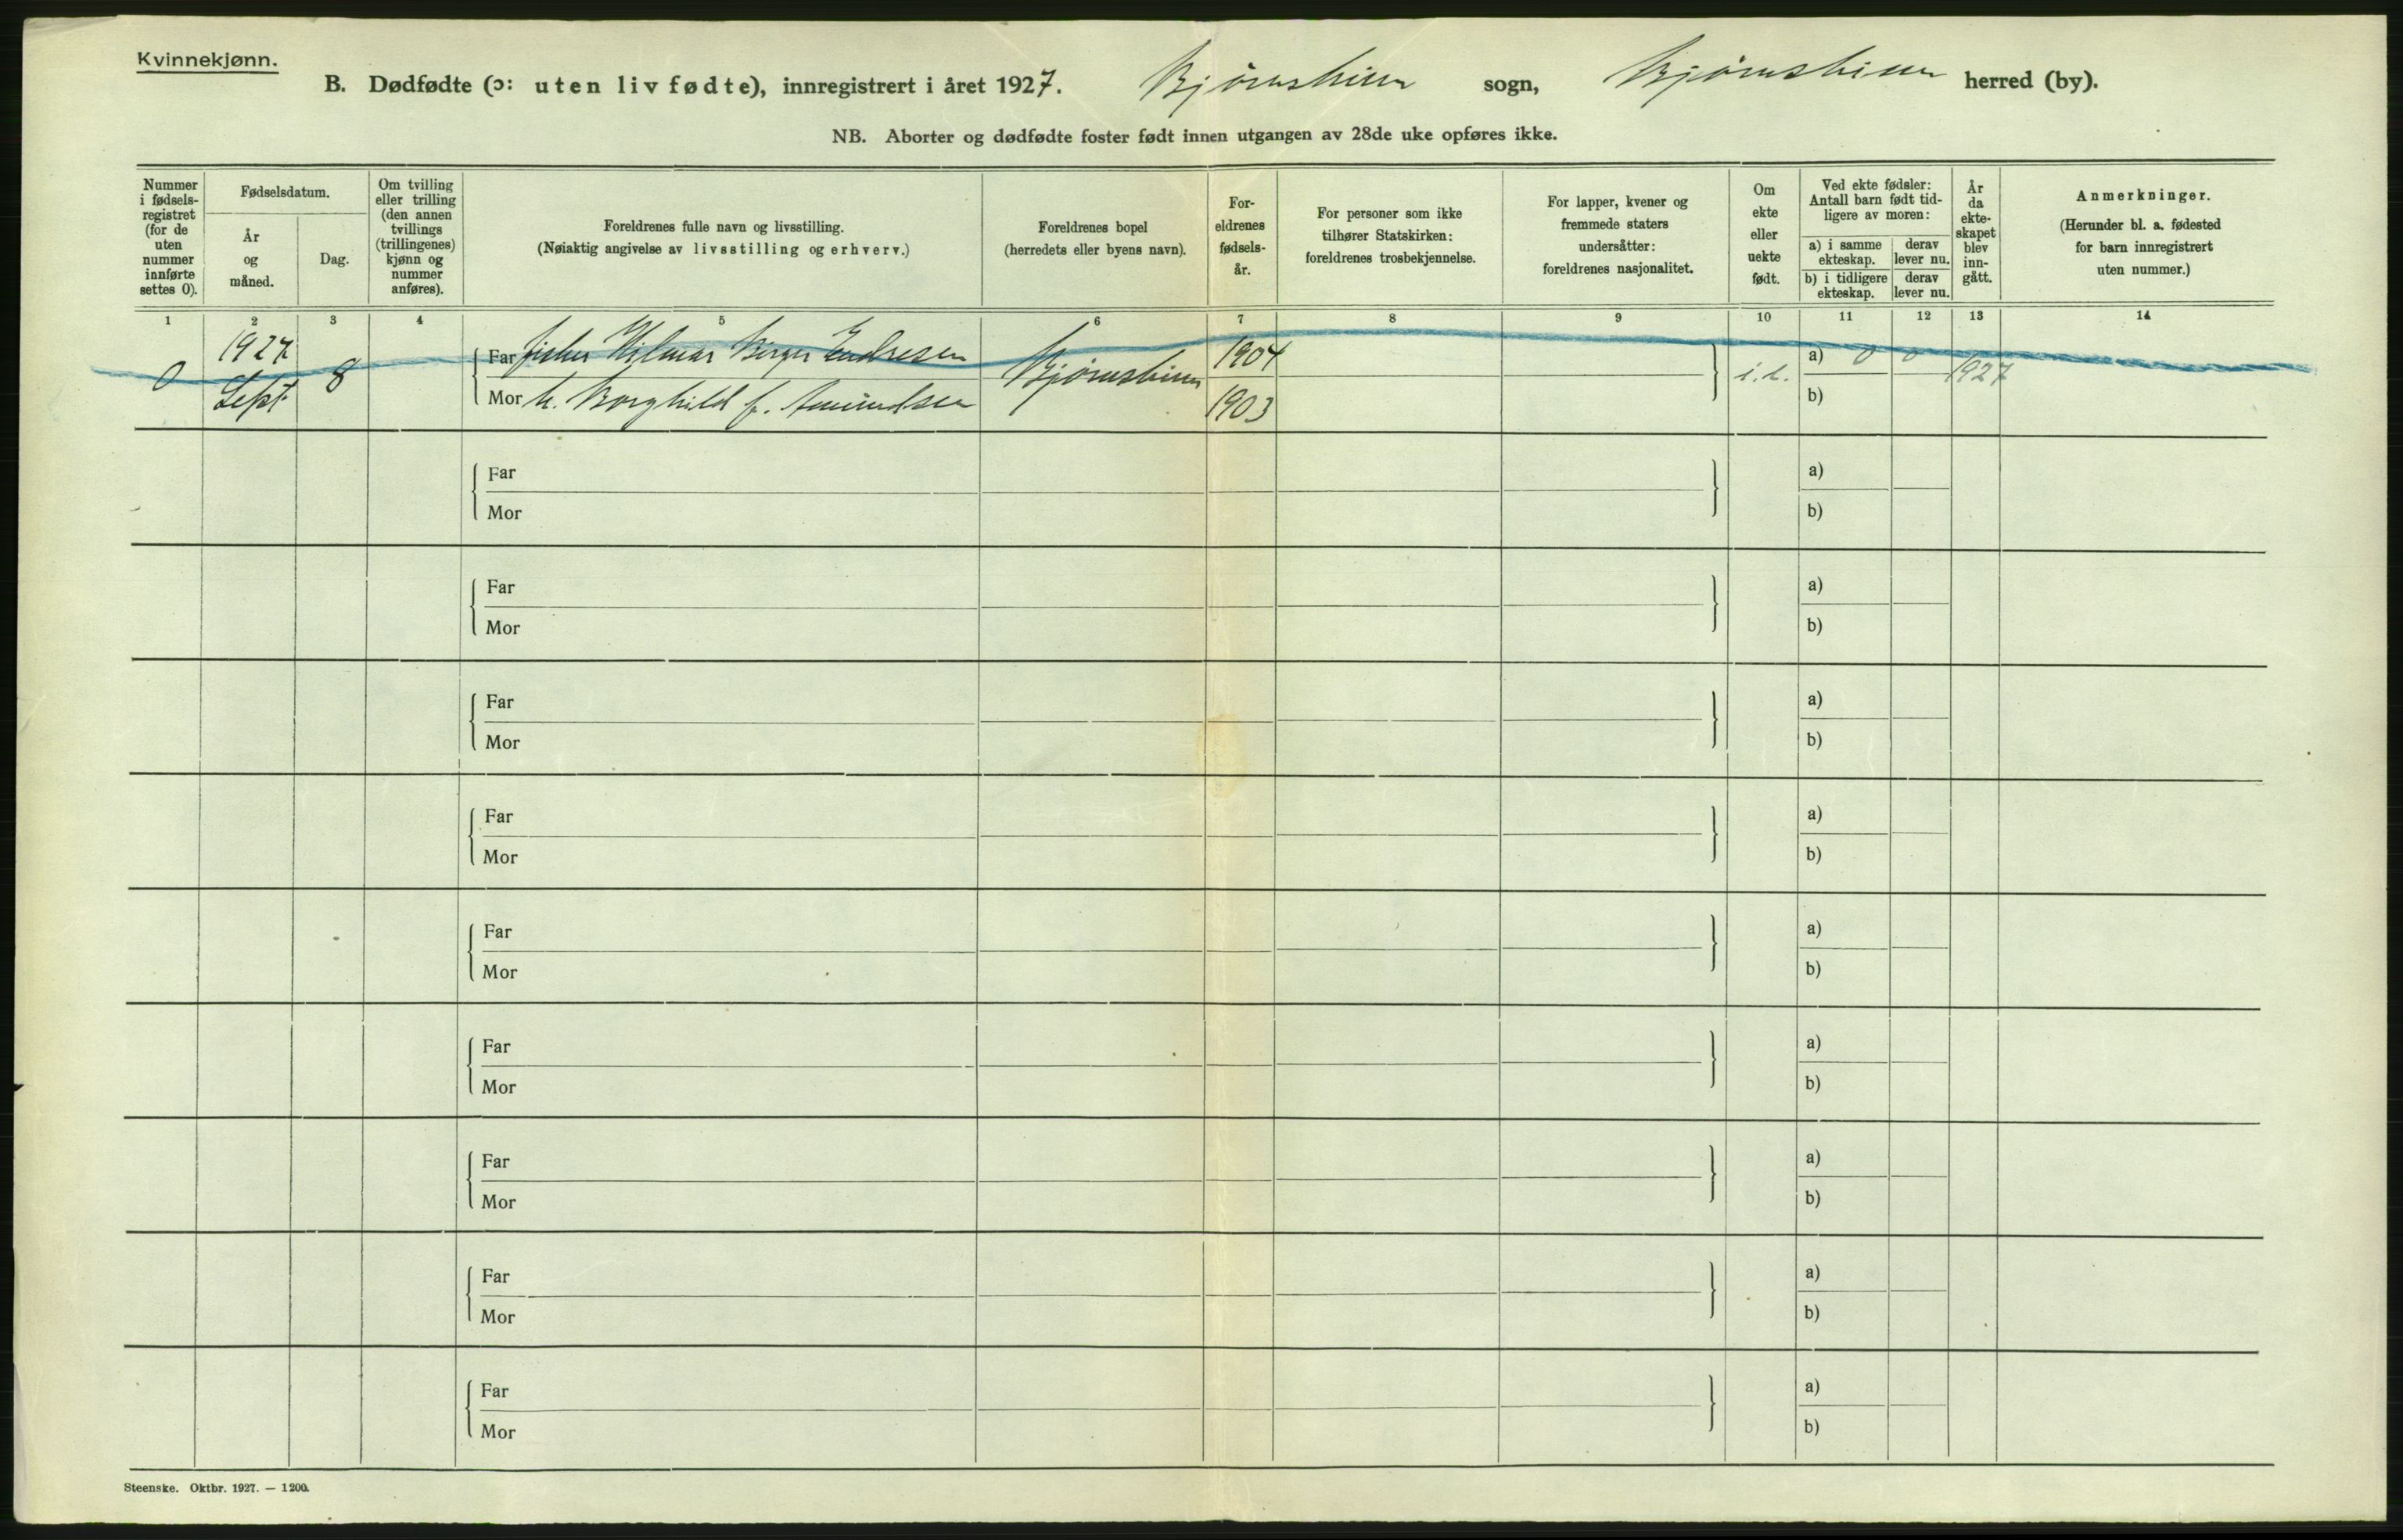 Kvinnekjønn.
B. Dødfødte (ɔ: uten liv fødte), innregistrert i året 1927. Bjørnskinn sogn, Bjørnskinn herred (by).
NB. Aborter og dødfødte foster født innen utgangen av 28de uke opføres ikke.
Nummer i fødsels-registret (for de uten nummer innførte settes 0).
Fødselsdatum.
År og måned.
Dag.
Om tvilling eller trilling (den annen tvillings (trillingenes) kjønn og nummer anføres).
Foreldrenes fulle navn og livsstilling.
(Nøiaktig angivelse av livsstilling og erhverv.)
Foreldrenes bopel
(herredets eller byens navn).
For-eldrenes fødsels-år.
For personer som ikke tilhører Statskirken: foreldrenes trosbekjennelse.
For lapper, kvener og fremmede staters undersåtter: foreldrenes nasjonalitet.
Om ekte eller uekte født.
Ved ekte fødsler: Antall barn født tid-ligere av moren:
a) i samme ekteskap.
derav lever nu.
b) i tidligere ekteskap.
derav lever nu.
År da ekte-skapet blev inn-gått.
Anmerkninger.
(Herunder bl. a. fødested for barn innregistrert uten nummer.)
1 2 3 4 5 6 7 8 9 10 11 12 13 14
0 1927 Sept 8
Far fisker Hilmar Birger Endresen Bjørnskinn 1904 a) 0 0 1927
Mor h. Borghild f. Amundsen 1903 b)
Far a)
Mor b)
Far a)
Mor b)
Far a)
Mor b)
Far a)
Mor b)
Far a)
Mor b)
Far a)
Mor b)
Far a)
Mor b)
Far a)
Mor b)
Far a)
Mor b)
Steenske. Oktbr. 1927. — 1200.